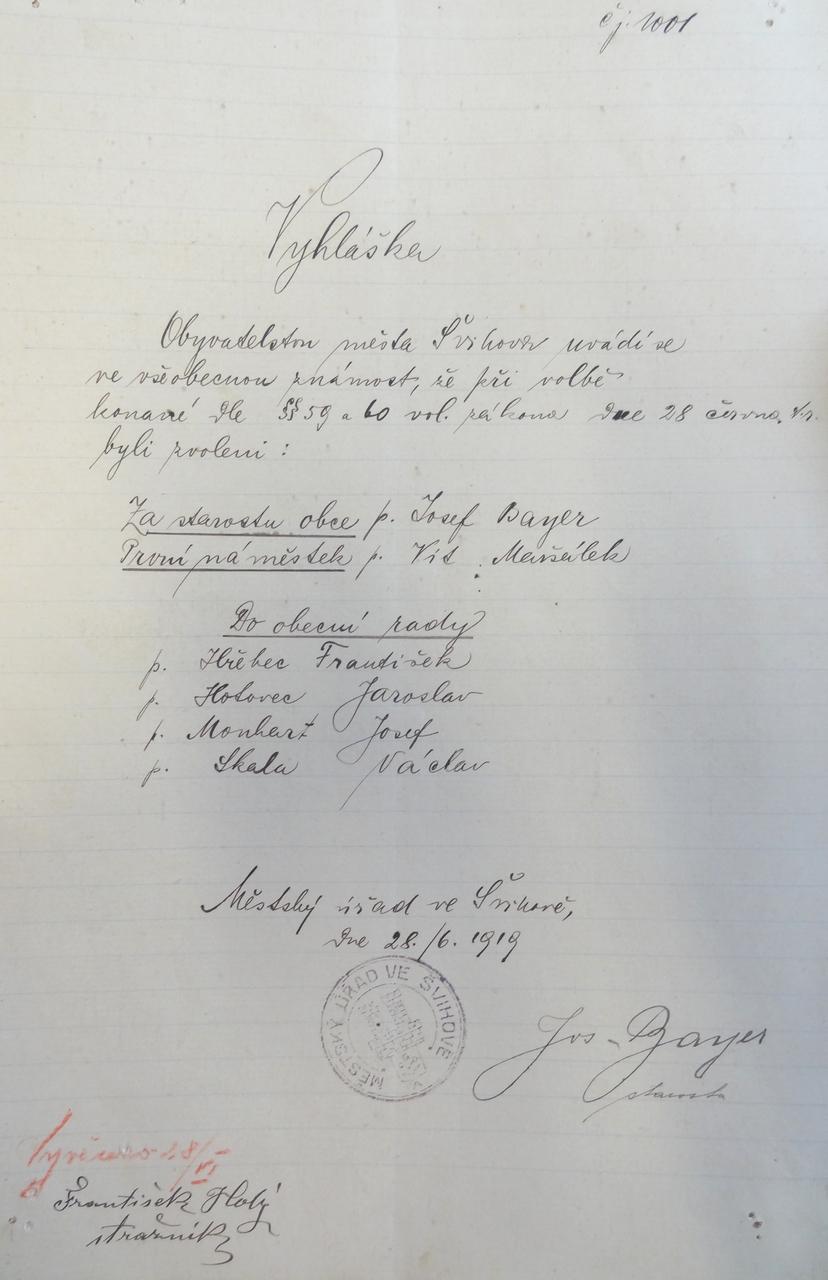 čj. 1001
Vyhláška
Obyvatelstvu města Švihova uvádí se
ve všeobecnou známost, že při volbě
konané dle §§ 59 a 60 vol. zákona dne 28 června, t.r.
byli zvoleni :
Za starostu obce p. Josef Bayer
První náměstek p. Vít Maršálek
Do obecní rady
p. Hřebec František
p. Hotovec Jaroslav
p. Monhart Josef
p. Skala Václav
Městský úřad ve Švihově,
dne 28./6. 1919
MĚSTSKÝ ÚŘAD VE ŠVIHOVĚ
Jos. Bayer
starosta
Vyvěšeno 28/VI
František Holý
strážník